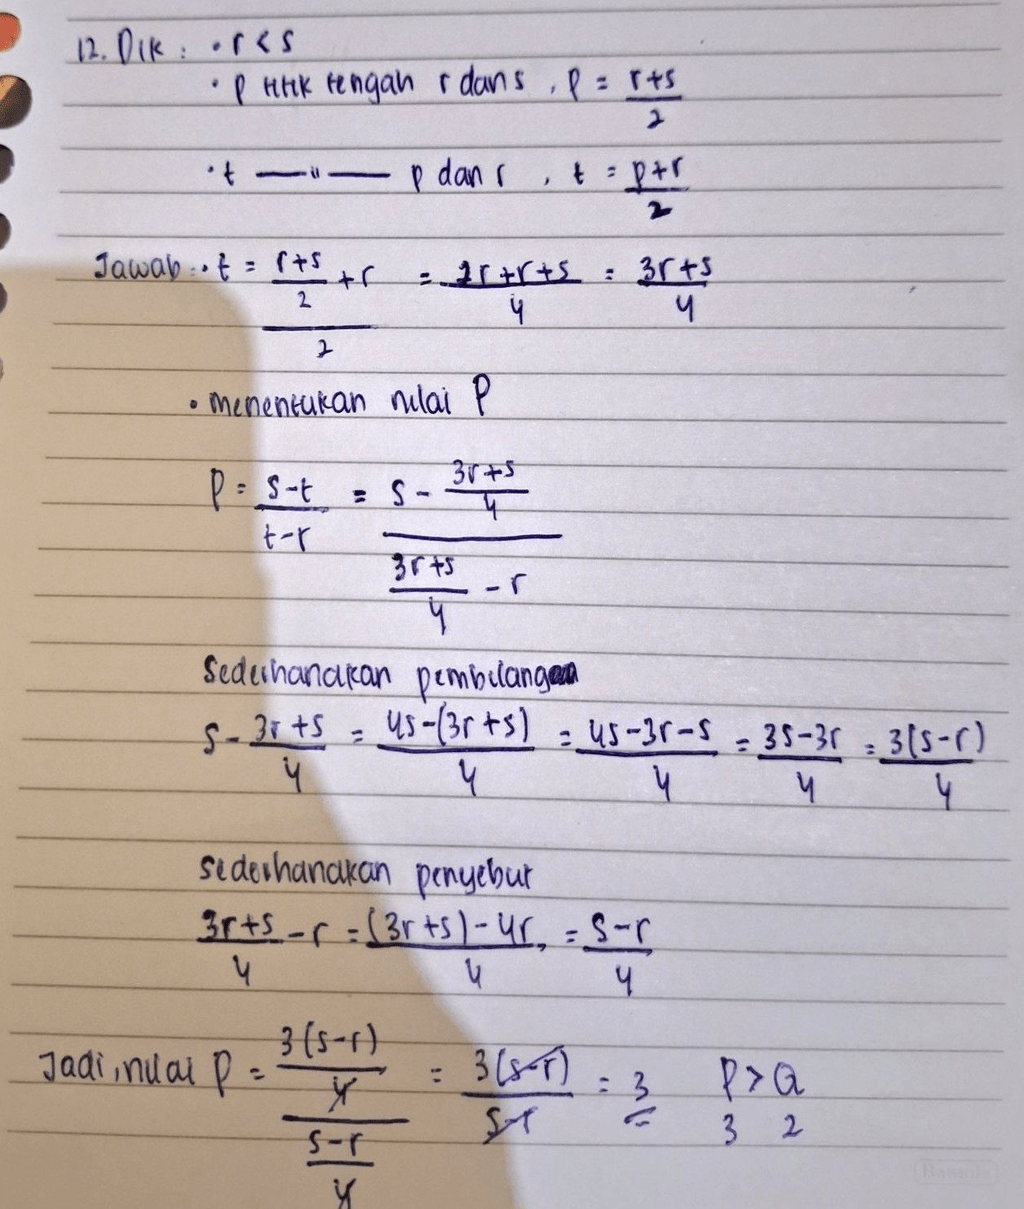 12. Dik : • r < s
• p titik tengah r dan s , p = r+s/2
• t —〃— p dan r , t = p+r/2
Jawab : • t = (r+s/2 + r)/2 = 2r+r+s/4 = 3r+s/4
• menentukan nilai P
P = s-t/t-r = (s - 3r+s/4)/(3r+s/4 - r)
Sederhanakan pembilang
s - 3r+s/4 = 4s-(3r+s)/4 = 4s-3r-s/4 = 3s-3r/4 = 3(s-r)/4
sederhanakan penyebut
3r+s/4 - r = (3r+s)-4r/4 = s-r/4
Jadi, nilai P = (3(s-r)/4)/(s-r/4) = 3(s-r)/s-r = 3 P > Q
3 2